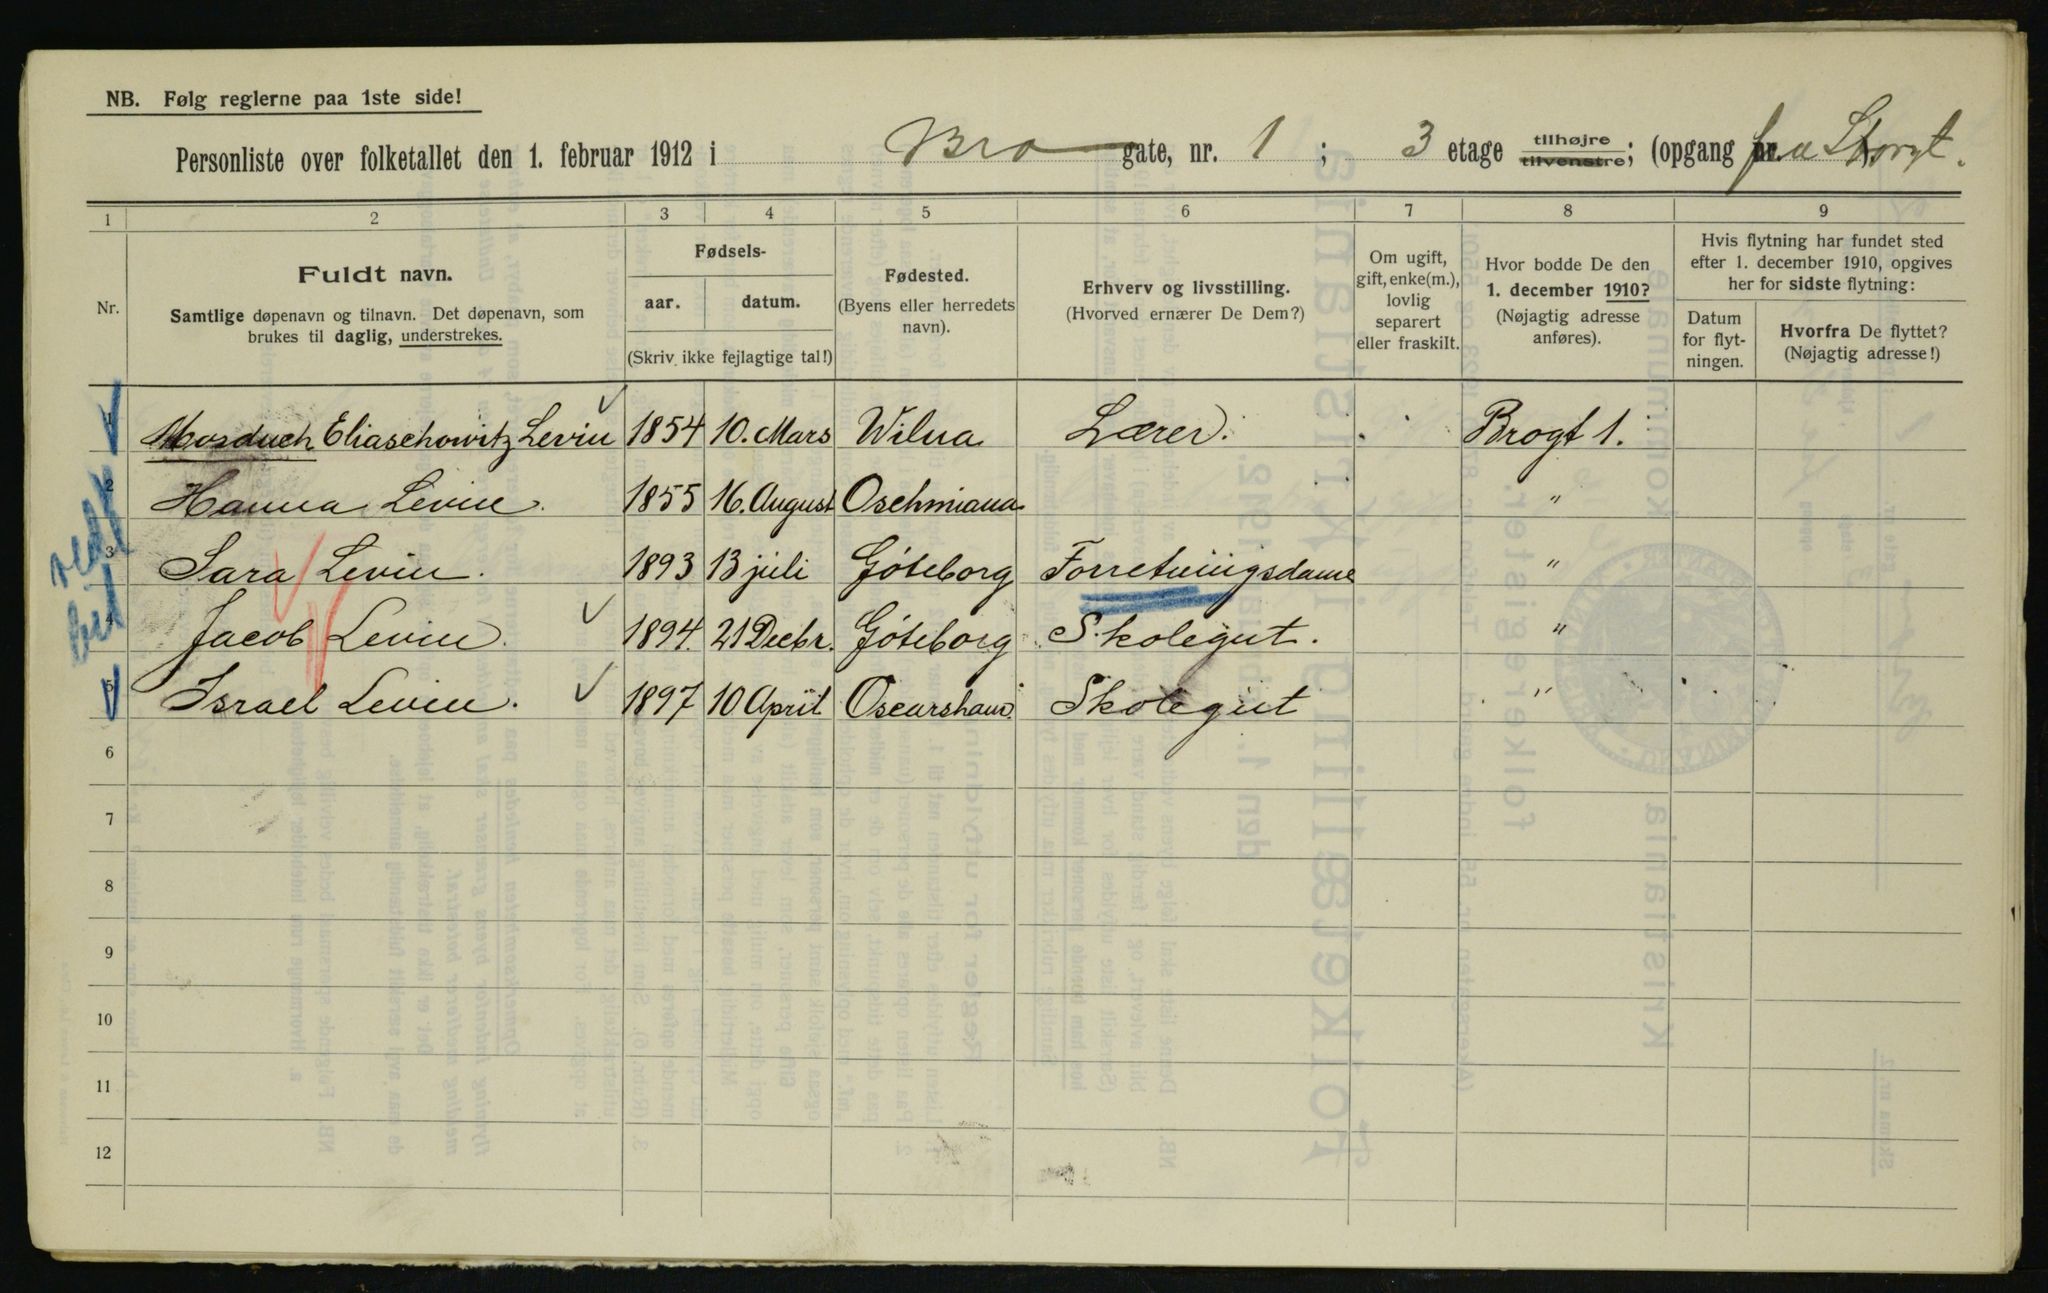 NB. Følg reglerne paa 1ste side!
Personliste over folketallet den 1. februar 1912 i Bro gate, nr. 1 ; 3 etage tilhøjre tilvenstre; (opgang nr. fra Storgt.
1 2 3 4 5 6 7 8 9
Nr.
Fuldt navn.
Samtlige døpenavn og tilnavn. Det døpenavn, som
brukes til daglig, understrekes.
Fødsels-
aar. datum.
(Skriv ikke fejlagtige tal!)
Fødested.
(Byens eller herredets
navn).
Erhverv og livsstilling.
(Hvorved ernærer De Dem?)
Om ugift,
gift, enke(m.),
lovlig
separert
eller fraskilt.
Hvor bodde De den
1. december 1910?
(Nøjagtig adresse
anføres).
Hvis flytning har fundet sted
efter 1. december 1910, opgives
her for sidste flytning:
Datum
for flyt-
ningen.
Hvorfra De flyttet?
(Nøjagtig adresse!)
1 Mosduch Eliaschowitz Levin 1854 10. Mars Wilna Lærer. Brogt 1.
2 Hanna Levin. 1855 16. August Oschmiana "
3 Sara Levin. 1893 13 juli Göteborg Forretningsdame "
4 Jacob Levin. 1894. 21 Decbr. Göteborg Skolegut. "
5 Israel Levin. 1897 10 April Oscarshavn. Skolegut "
6
7
8
9
10
11
12